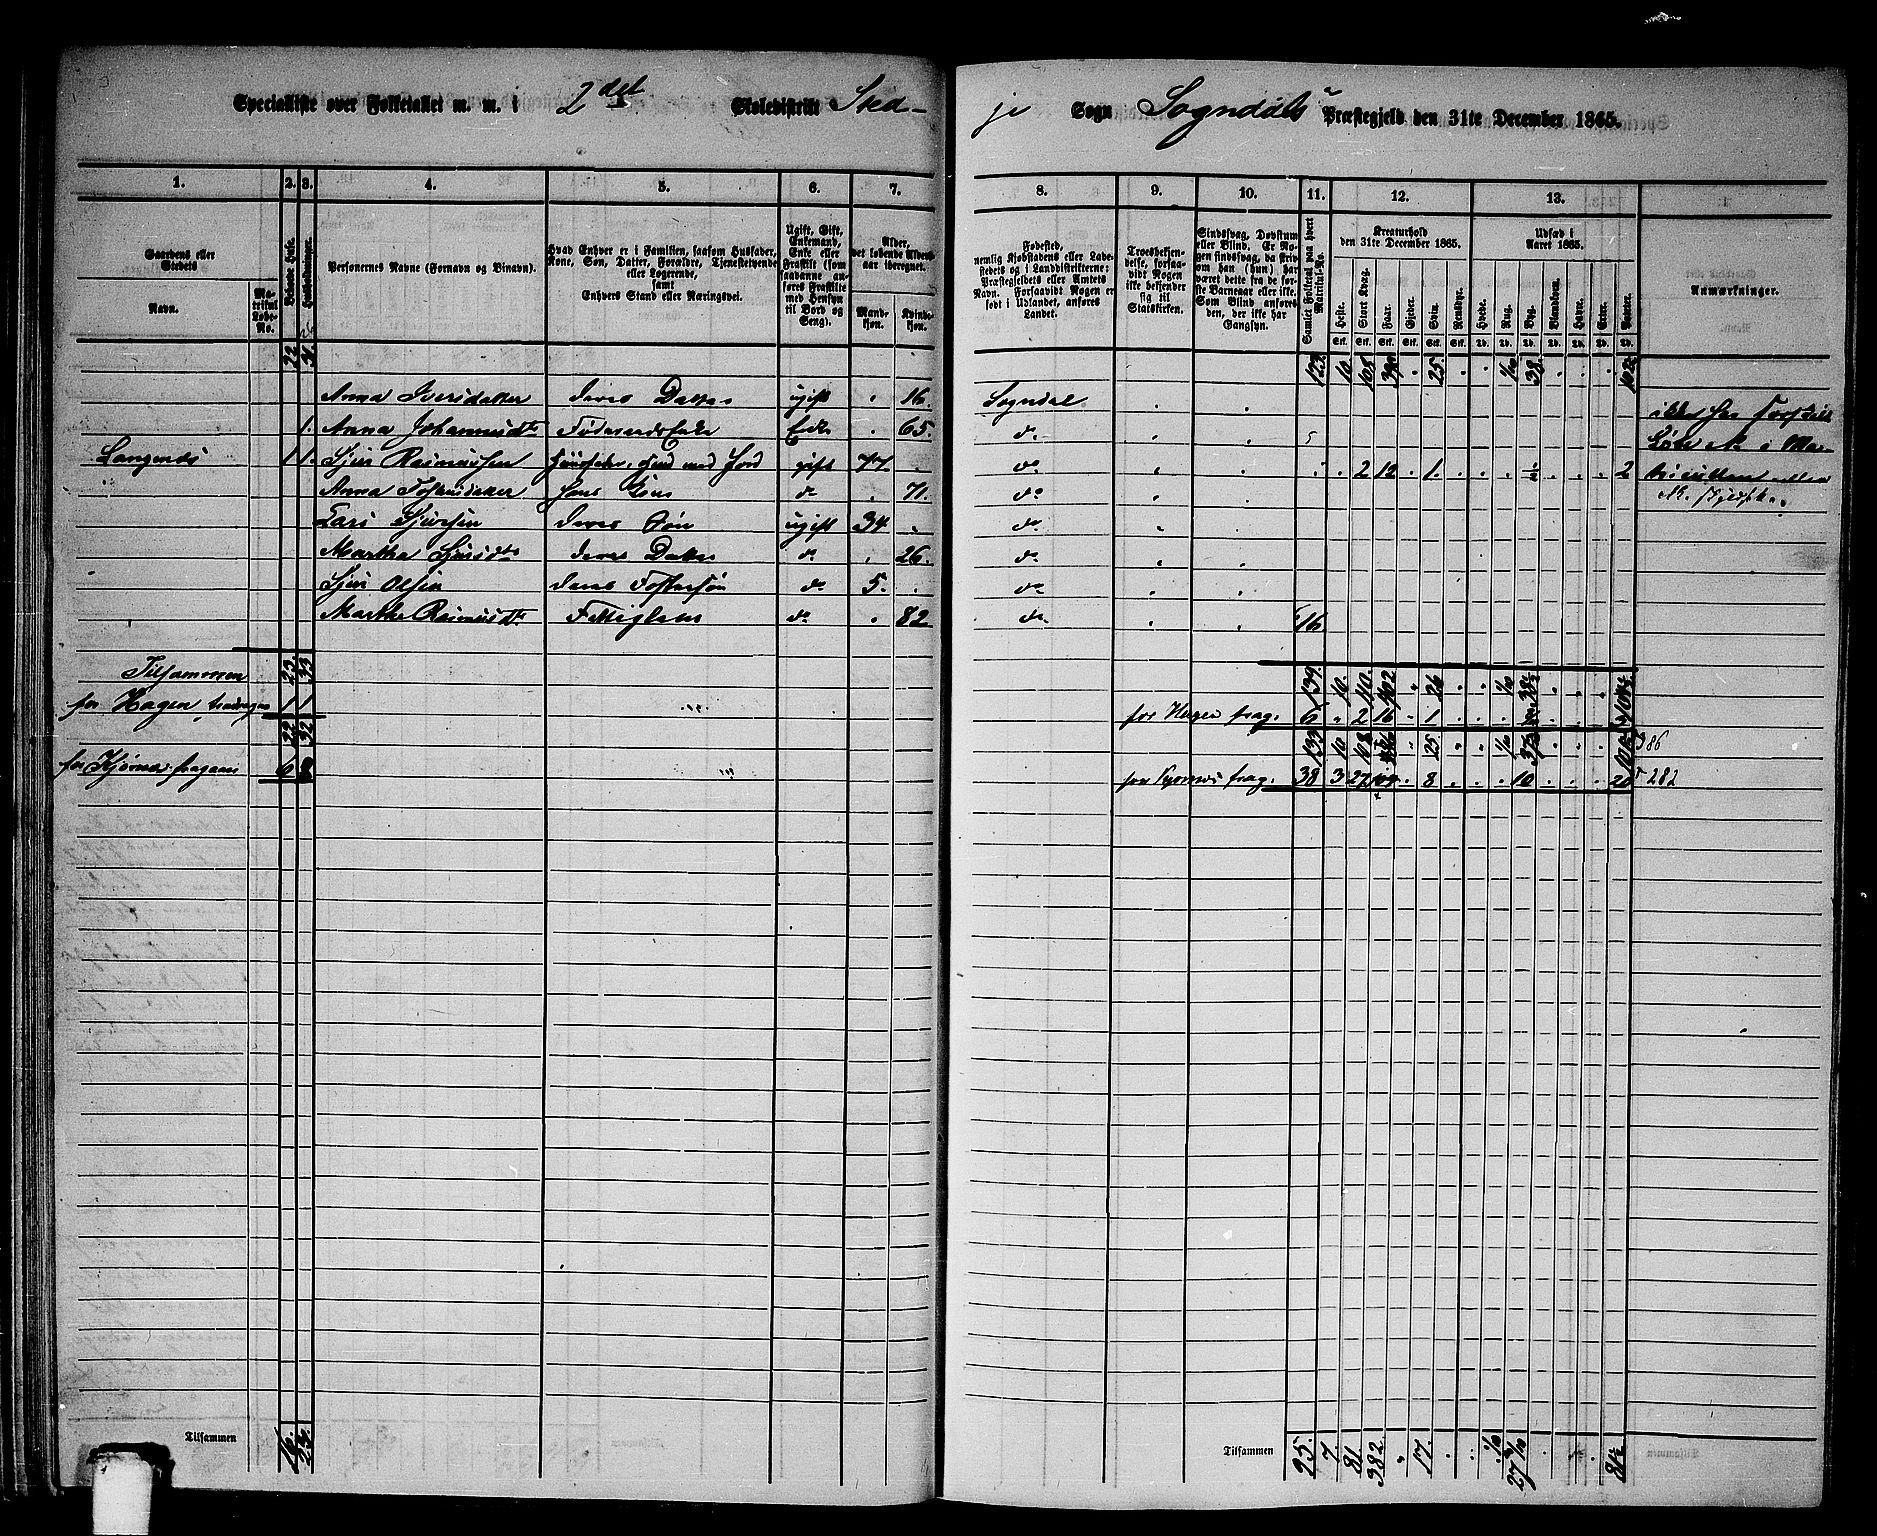 Specialliste over Folketallet m. m. i 2det Skoledistrikt Sted-
je Sogn Sogndals Præstegjeld den 31te December 1865.
1. 2. 3. 4. 5. 6. 7.
8. 9. 10. 11. 12. 13.
Gaardens eller Stedets
Navn.
Matrikul Løbe-No.
Beboede Huse.
Husholdninger.
Personernes Navne (Fornavn og Binavn).
Hvad Enhver er i Familien, saasom Husfader, Kone, Søn, Datter, Forældre, Tjenestetyende eller Logerende, samt Enhvers Stand eller Næringsvei.
Ugift, Gift, Enkemand, Enke eller Fraskilt (som saadanne anføres Fraskilte med Hensyn til Bord og Seng).
Alder, det løbende Alders-aar iberegnet.
Mandkjøn. Kvindekjøn.
Fødested, nemlig Kjøbstadens eller Ladestedets og i Landdistrikterne: Præstegjeldets eller Amtets Navn. Forsaavidt Nogen er født i Udlandet, anføres Landet.
Troesbekjendelse, forsaavidt Nogen ikke bekjender sig til Statskirken.
Sindssvag, Døvstum eller Blind. Er Nogen sindssvag, da skrives om han (hun) har været dette fra de første Barneaar eller ikke. Som Blind anføres den, der ikke har Gangsyn.
Samlet Folketal paa hvert Matrikul-No.
Kreaturhold den 31te December 1865.
Heste. Stort Kvæg. Faar. Gjeder. Sviin. Rensdyr.
Udsæd i Aaret 1865.
Hvede. Rug. Byg. Blandkorn. Havre. Erter. Poteter.
Anmærkninger.
22 123 10 108 25 38 102
Anna Iversdatter deres Datter ugift 16. Sogndal
1. Anna Johannesdtr Føderaads Enke Enke 65. do
Langenæs 1 1. Sjur Rasmussen gift 77 do 2 12 1. 2
Anna hans Kone do 71. do
Lars Sjursen deres Søn ugift 34 do
Martha Sjursdtr deres Datter do 26. do
Sjur Olsen deres Fostersøn do 5. do
Martha Rasmusdtr Fattiglem do 82 do 16
Tilsammen 23. 33 139. 10. 110. 402 26
for Hagen fradrages 1 1 for Hagen frag. 6 2 16 1
22 32 133 10 108 386 25 386
for Kjørnes fragaar 6 8 for Kjørnes frag. 38 3 27 104 8 10 20 282
Tilsammen 16. 23.
Tilsammen 95. 7 81. 282 17.